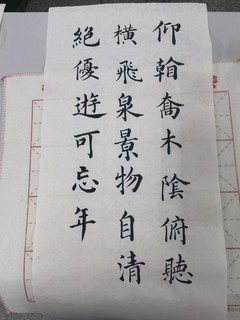 仰翰喬木陰俯聽
橫飛泉景物自清
絕優遊可忘年